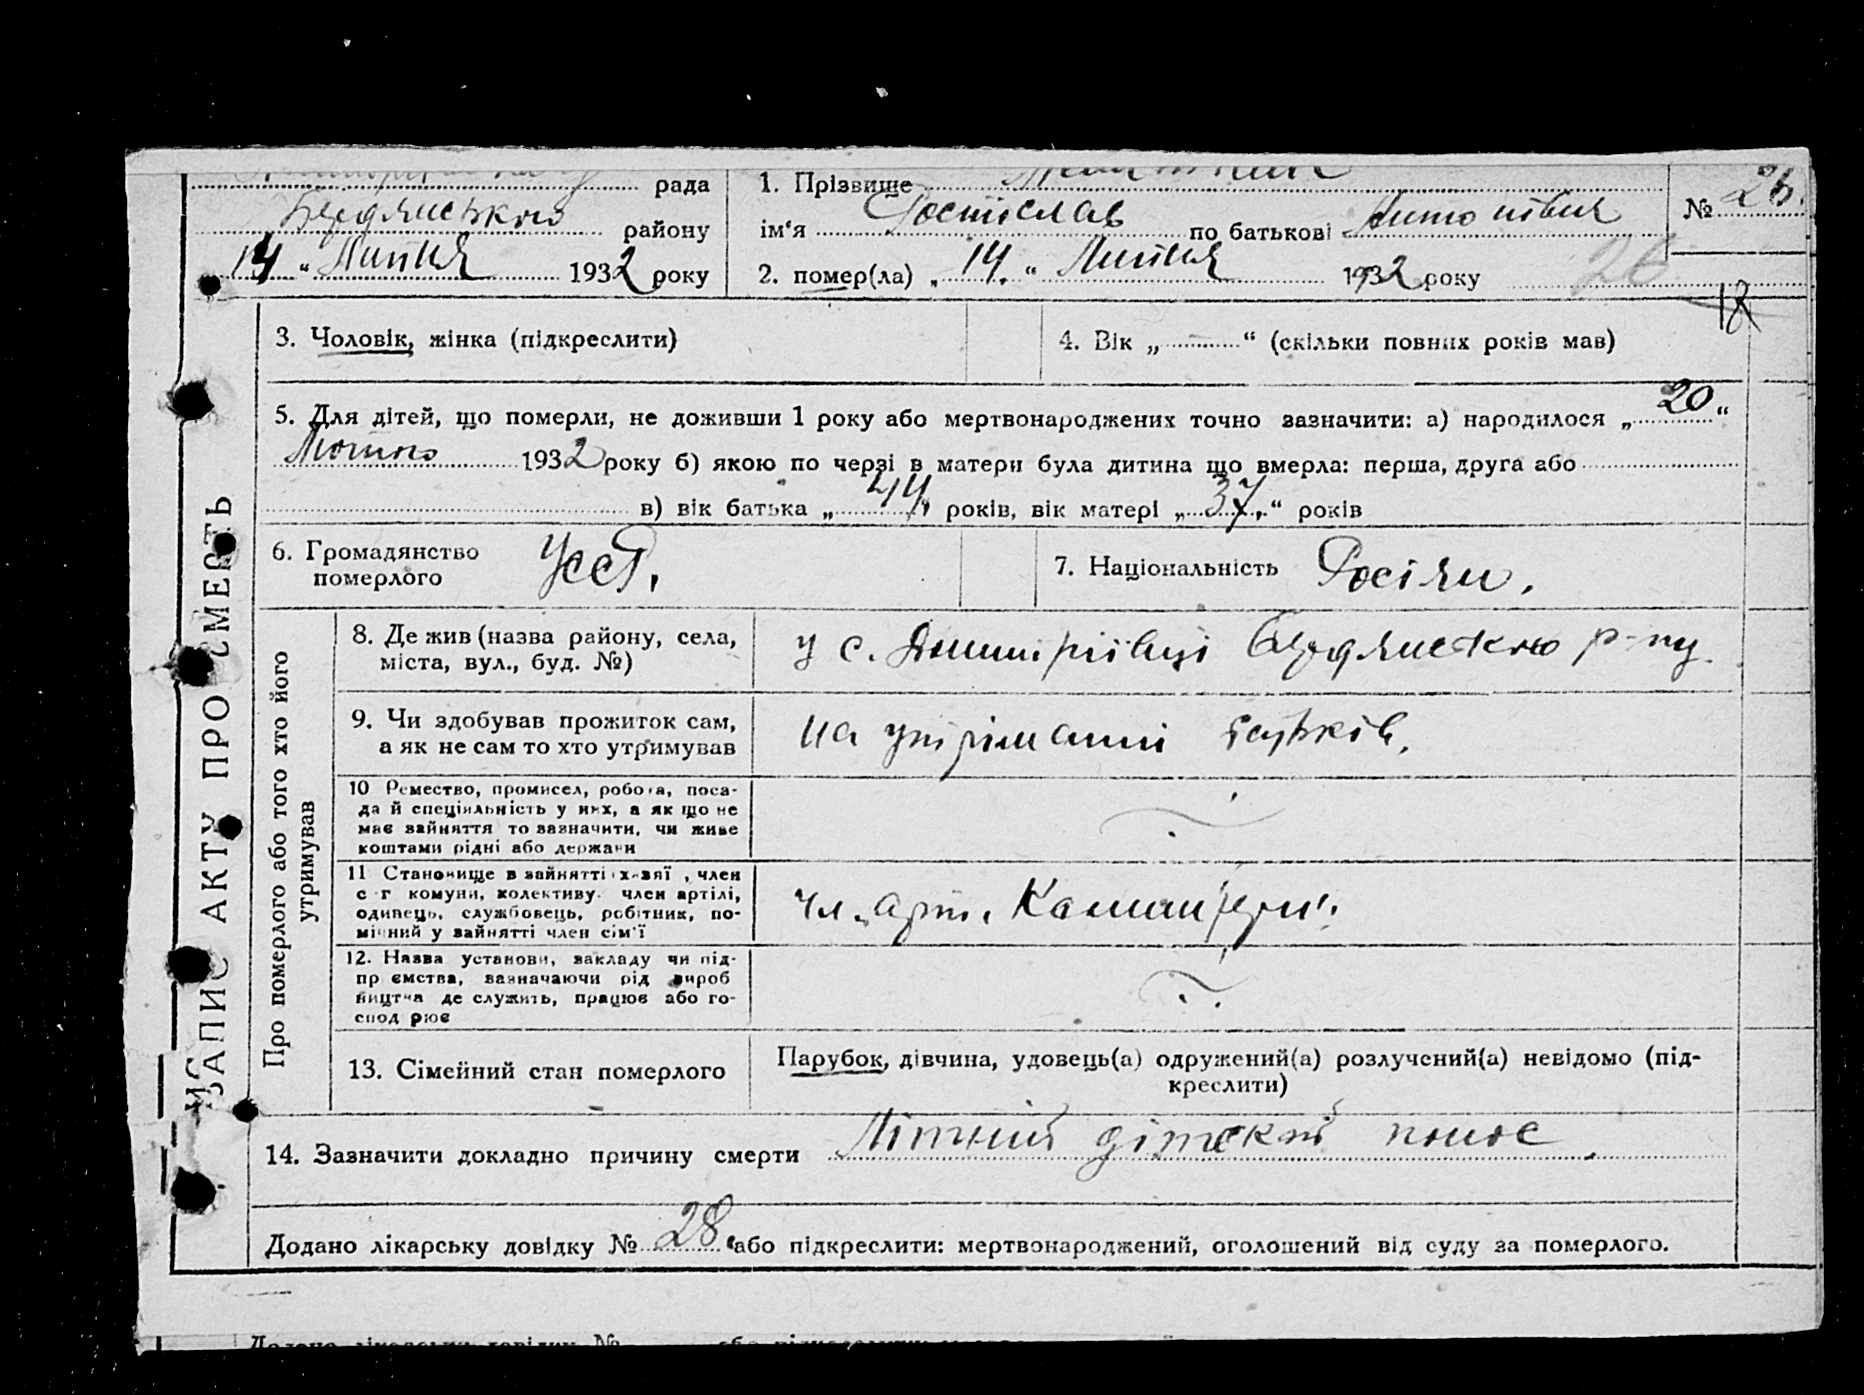 рада 1. Прізвище № 26.
Бердянського району ім'я Ростислав по батькові Антонівич
14 " Липня 1932 року 2. помер(ла) „ 14 " Липня 1932 року 26
18
3. Чоловік, жінка (підкреслити) 4. Вік „ “ (скільки повних років мав)
5. Для дітей, що померли, не доживши 1 року або мертвонароджених точно зазначити: а) народилося „ 20 “
Лютого 1932 року б) якою по черзі в матери була дитина що вмерла: перша, друга або
в) вік батька „ 44 “ років, вік матері „ 37 “ років
6. Громадянство УССР. 7. Національність Росіян.
померлого
8. Де жив (назва району, села, у с. Дмитрівці Бердянского р-ну.
міста, вул., буд. №)
9. Чи здобував прожиток сам, на утріманні батьків.
а як не сам то хто утримував
10 Ремество, промисел, робота, поса-
да й спеціяльність у них, а як що не
має зайняття то зазначити, чи живе
коштами рідні або держави
11 Становище в зайнятті хазяї, член
с г комуни, колективу. член артілі, чл. арт.
одинець, службовець, робітник, по-
мічний у зайнятті член сім'ї
12. Назва установи, закладу чи під-
пр ємства, зазначаючи рід вироб
ництва де служить, працює або го-
спод рює
13. Сімейний стан померлого Парубок, дівчина, удовець(а) одружений(а) розлучений(а) невідомо (під-
креслити)
14. Зазначити докладно причину смерти Літний дітский понос.
Додано лікарську довідку № 28 або підкреслити: мертвонароджений, оголошений від суду за померлого.
ЗАПИС АКТУ ПРО СМЕРТЬ
Про померлого або того хто його
утримував